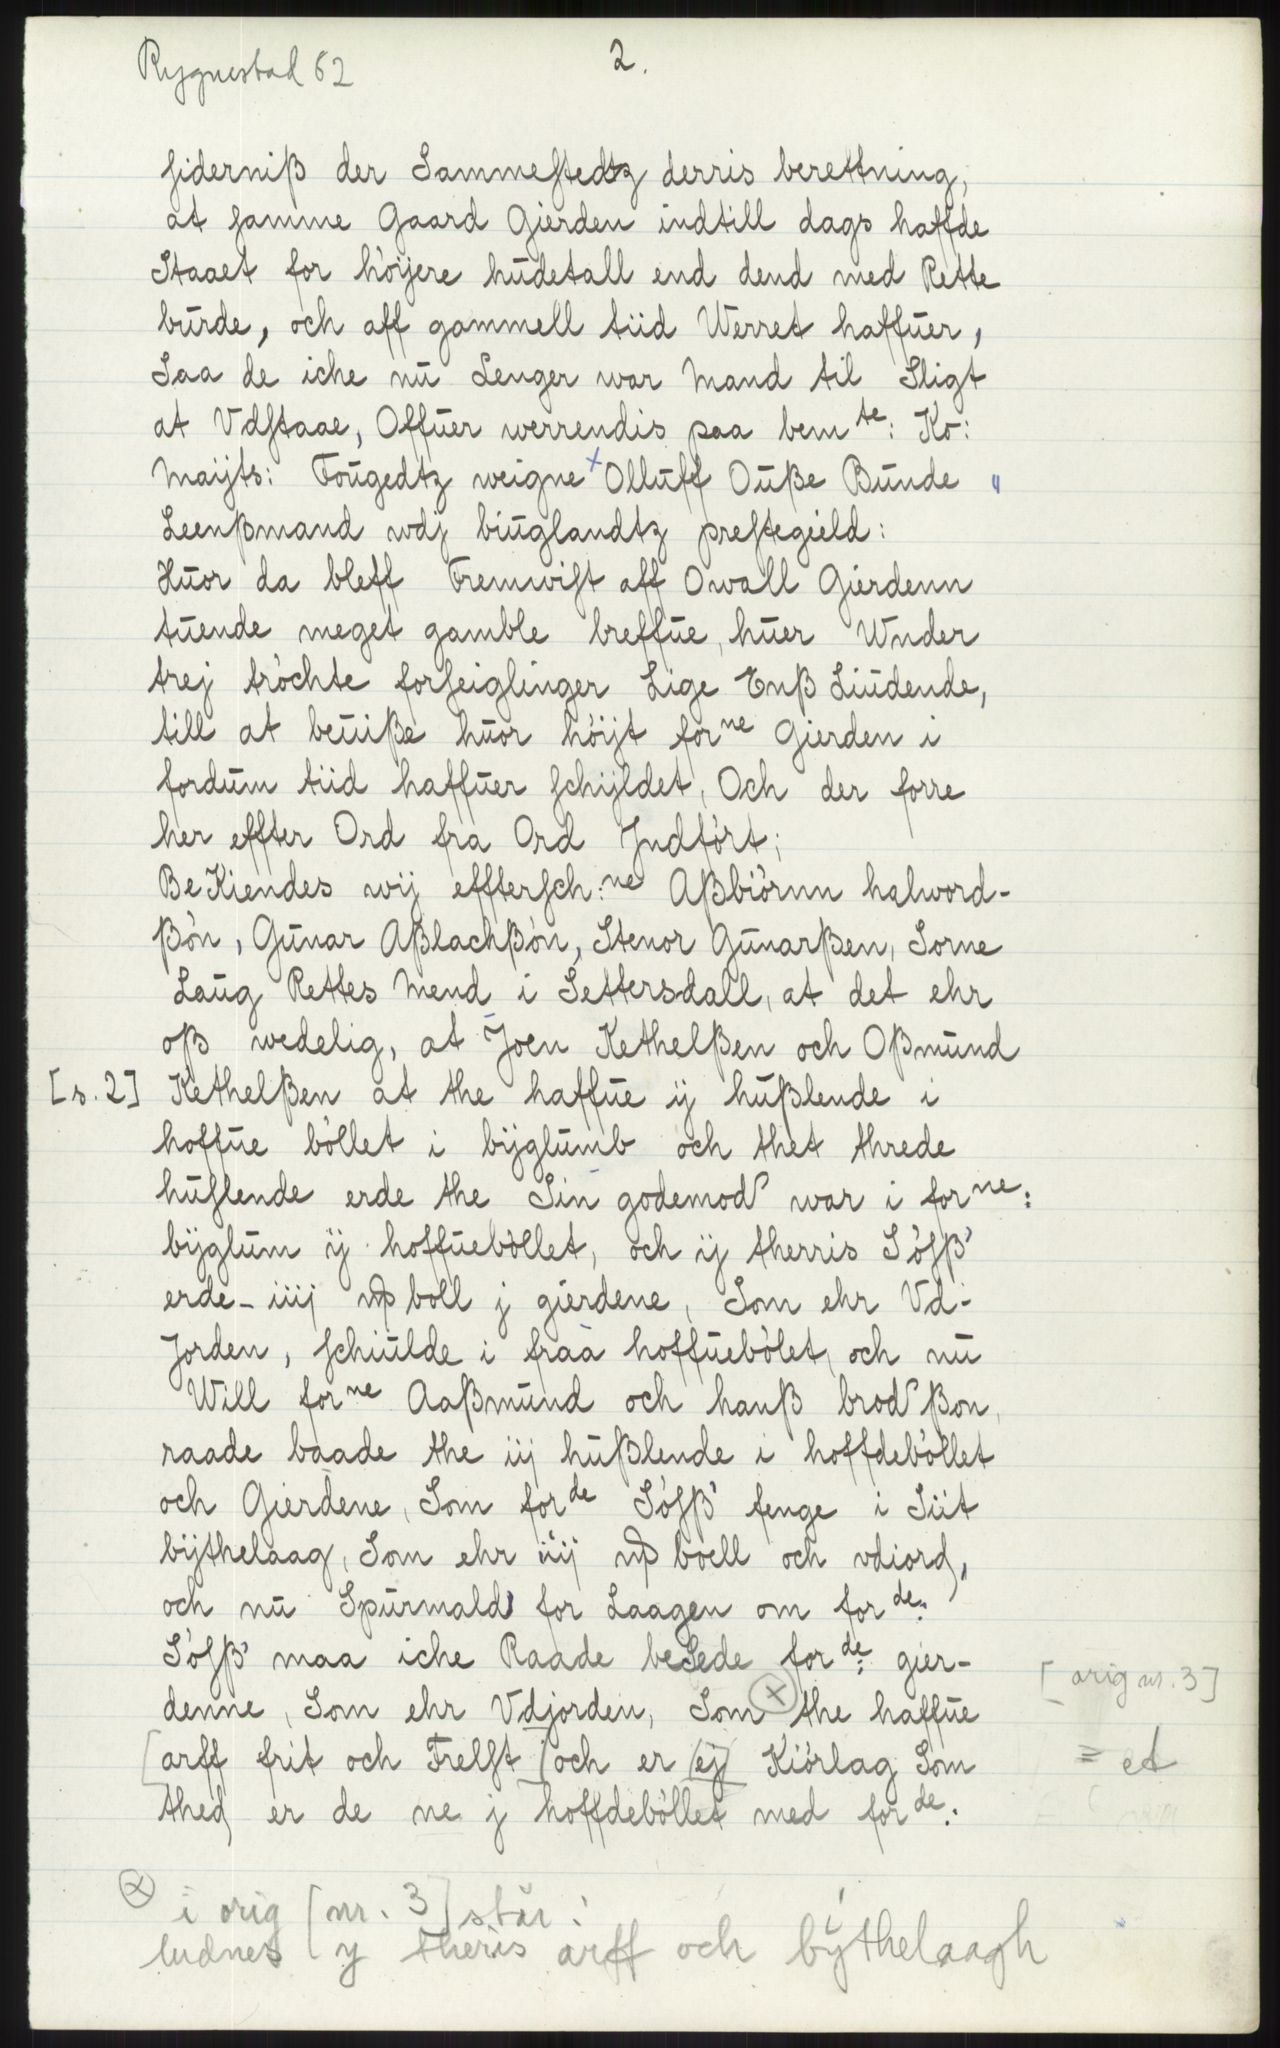 Rygnestad 62
2.
siderniß der Sammestedtz derris berettning,
at samme Gaard Gierden indtill dags haffde
Staaet for höijere hudetall end dend med Rette
burde, och aff gammell tiid Werret haffuer,
Saa de iche nu Lenger war Mand til Sligt
at Vdstaae, Offuer werrendis paa bem te: Ko:
Maijts: Fougedtz weigne x Olluff Ouße Bunde "
Leenßmand wdj biuglandtz prestegield:
Huor da bleff Fremwist aff Owall Gierdenn
tuende meget gamble breffue, huer Wnder
trej tröchte forseiglinger Lige Enß Liudende,
till at beuiße huor höijt for ne Gierden i
fordum tiid haffuer schijldet, Och der forre
her effter Ord fra Ord Jndfört;
BeKiendes wij efftersch: ne Aßbiörnn halword-
ßön, Gunar Aßlachßön, Stenor Gunarßen, Sorne
Laug Rettes Mend i Settersdall, at det ehr
oß wedelig, at Joen Kethelßen och Oßmund
[s. 2] Kethelßen at the haffue ij hußlende i
hoffue böllet i bijglumb och thet threde
huslende erde the Sin godemod war i for ne:
bijglum ij hoffueböllet, och ij therris Sösß
erde- iiij boll j gierdene, Som ehr Vd-
Jorden, schiulde i fraa hoffuebölet, och nu
Will for ne Aaßmund och hanß brod ßon,
raade baade the iij hußlende i hoffdeböllet
och Gierdene, Som for de Sösß fenge i Siit
bijthelaag, Som ehr iiij boell och vdiord,
och nu Spurmald for Laagen om for de:
Sösß maa iche Raade beSede for de: gier-
denne, Som ehr Vdjorden, Som x the haffue
[orig nr. 3]
[arff frit och Frelst] och er [ej] Kiörlag Som
= et
thed er de ne j hoffdeböllet med for de:
x i orig [nr. 3] står:
ludnes y theris arff och býthelaagh